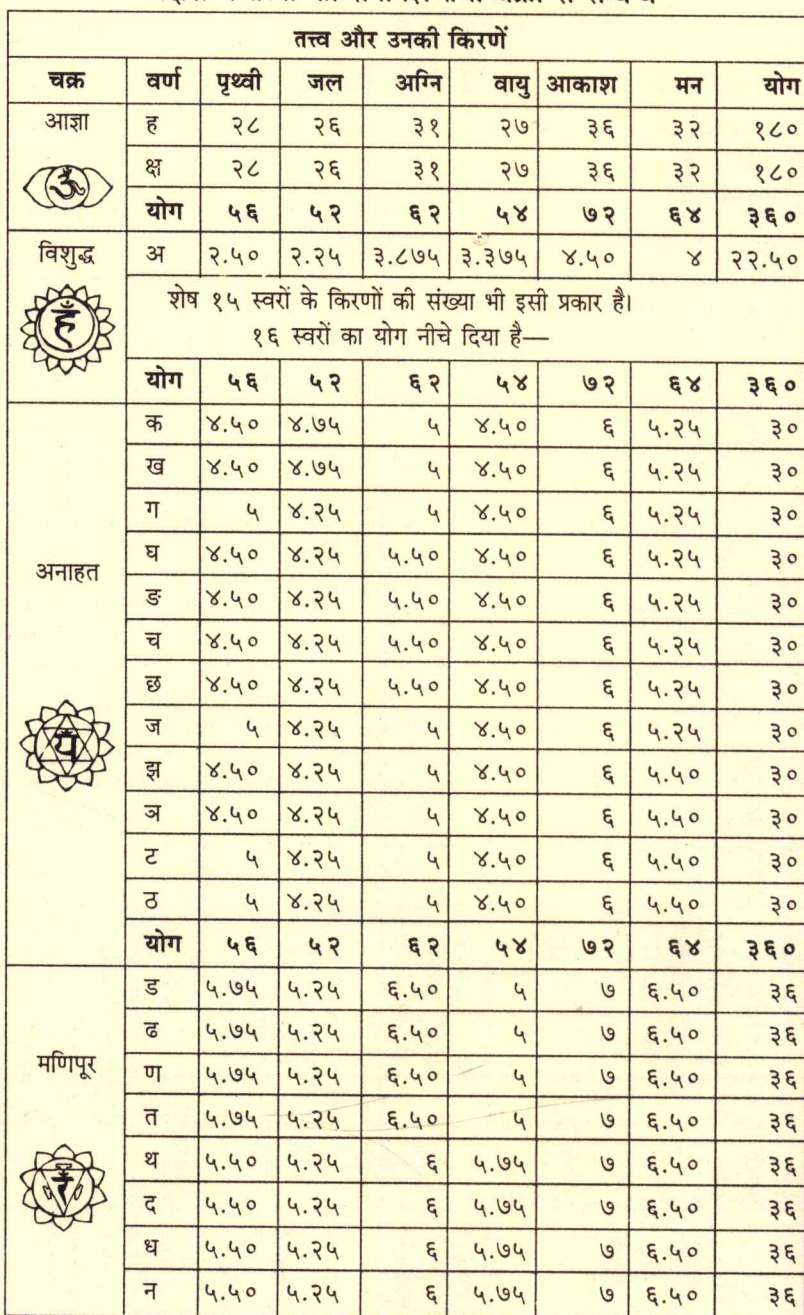 तत्त्व और उनकी किरणें
चक्र वर्ण पृथ्वी जल अग्नि वायु आकाश मन योग
आज्ञा ह २८ २६ ३१ २७ ३६ ३२ १८०
क्ष २८ २६ ३१ २७ ३६ ३२ १८०
ॐ
योग ५६ ५२ ६२ ५४ ७२ ६४ ३६०
विशुद्ध अ २.५० २.२५ ३.८७५ ३.३७५ ४.५० ४ २२.५०
हँ
शेष १५ स्वरों के किरणों की संख्या भी इसी प्रकार है।
१६ स्वरों का योग नीचे दिया है—
योग ५६ ५२ ६२ ५४ ७२ ६४ ३६०
क ४.५० ४.७५ ५ ४.५० ६ ५.२५ ३०
ख ४.५० ४.७५ ५ ४.५० ६ ५.२५ ३०
ग ५ ४.२५ ५ ४.५० ६ ५.२५ ३०
घ ४.५० ४.२५ ५.५० ४.५० ६ ५.२५ ३०
अनाहत
ङ ४.५० ४.२५ ५.५० ४.५० ६ ५.२५ ३०
च ४.५० ४.२५ ५.५० ४.५० ६ ५.२५ ३०
छ ४.५० ४.२५ ५.५० ४.५० ६ ५.२५ ३०
ज ५ ४.२५ ५ ४.५० ६ ५.२५ ३०
यँ
झ ४.५० ४.२५ ५ ४.५० ६ ५.५० ३०
ञ ४.५० ४.२५ ५ ४.५० ६ ५.५० ३०
ट ५ ४.२५ ५ ४.५० ६ ५.५० ३०
ठ ५ ४.२५ ५ ४.५० ६ ५.५० ३०
योग ५६ ५२ ६२ ५४ ७२ ६४ ३६०
ड ५.७५ ५.२५ ६.५० ५ ७ ६.५० ३६
ढ ५.७५ ५.२५ ६.५० ५ ७ ६.५० ३६
मणिपूर ण ५.७५ ५.२५ ६.५० ५ ७ ६.५० ३६
त ५.७५ ५.२५ ६.५० ५ ७ ६.५० ३६
थ ५.५० ५.२५ ६ ५.७५ ७ ६.५० ३६
रँ
द ५.५० ५.२५ ६ ५.७५ ७ ६.५० ३६
ध ५.५० ५.२५ ६ ५.७५ ७ ६.५० ३६
न ५.५० ५.२५ ६ ५.७५ ७ ६.५० ३६